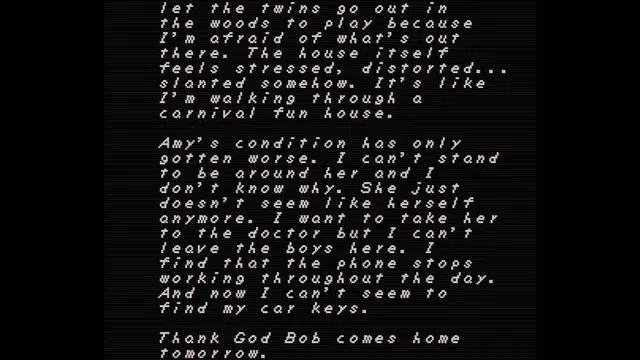 let the twins go out in
the woods to play because
I'm afraid of what's out
there. The house itself
feels stressed, distorted...
slanted somehow. It's like
I'm walking through a
carnival fun house.
Amy's condition has only
gotten worse. I can't stand
to be around her and I
don't know why. She just
doesn't seem like herself
anymore. I want to take her
to the doctor but I can't
leave the boys here. I
find that the phone stops
working throughout the day.
And now I can't seem to
find my car keys.
Thank God Bob comes home
tomorrow.